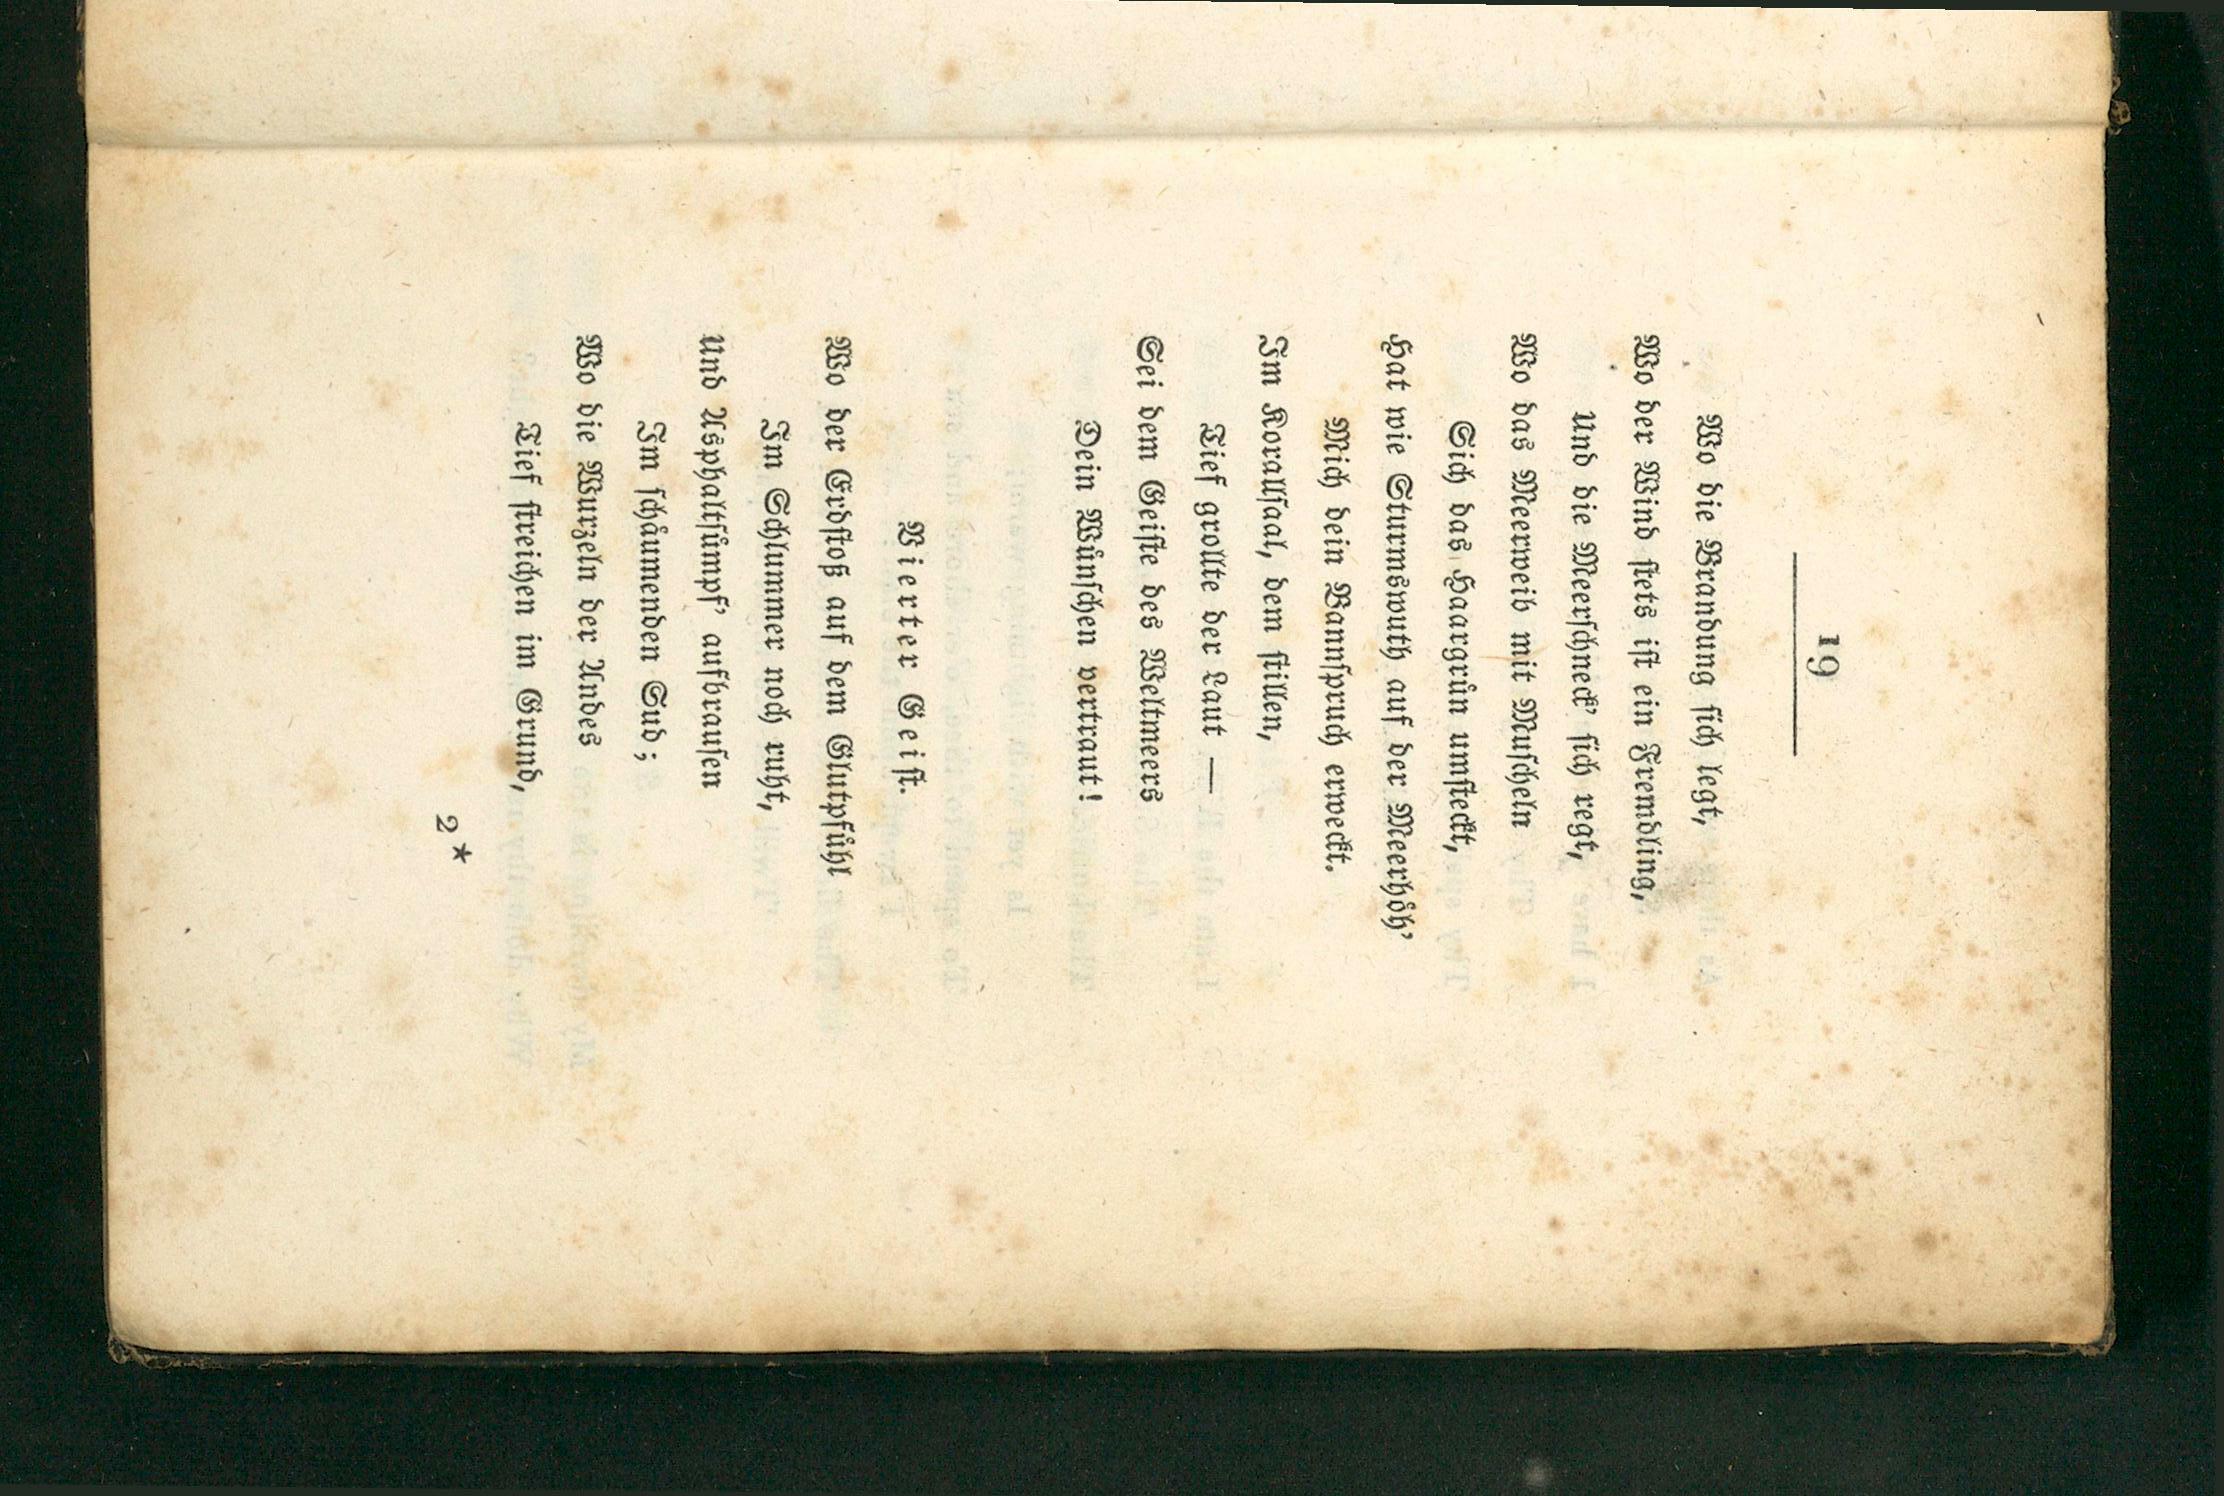 19
Wo die Brandung ſich legt,
Wo der Wind ſtets iſt ein Fremdling,
Und die Meerſchneck' ſich regt,
Wo das Meerweib mit Muſcheln
Sich das Haargrün umſteckt,
Hat wie Sturmswuth auf der Meerhöh'
Mich dein Bannſpruch erweckt.
Im Korallſaal, dem ſtillen,
Tief grollte der Laut —
Sei dem Geiſte des Weltmeers
Dein Wünſchen vertraut!
Vierter Geiſt.
Wo der Erdſtoß auf dem Glutpfühl
Im Schlummer noch ruht,
Und Asphaltſümpf' aufbrauſen
Im ſchäumenden Sud;
Wo die Wurzeln der Andes
Tief ſtreichen im Grund,
2*